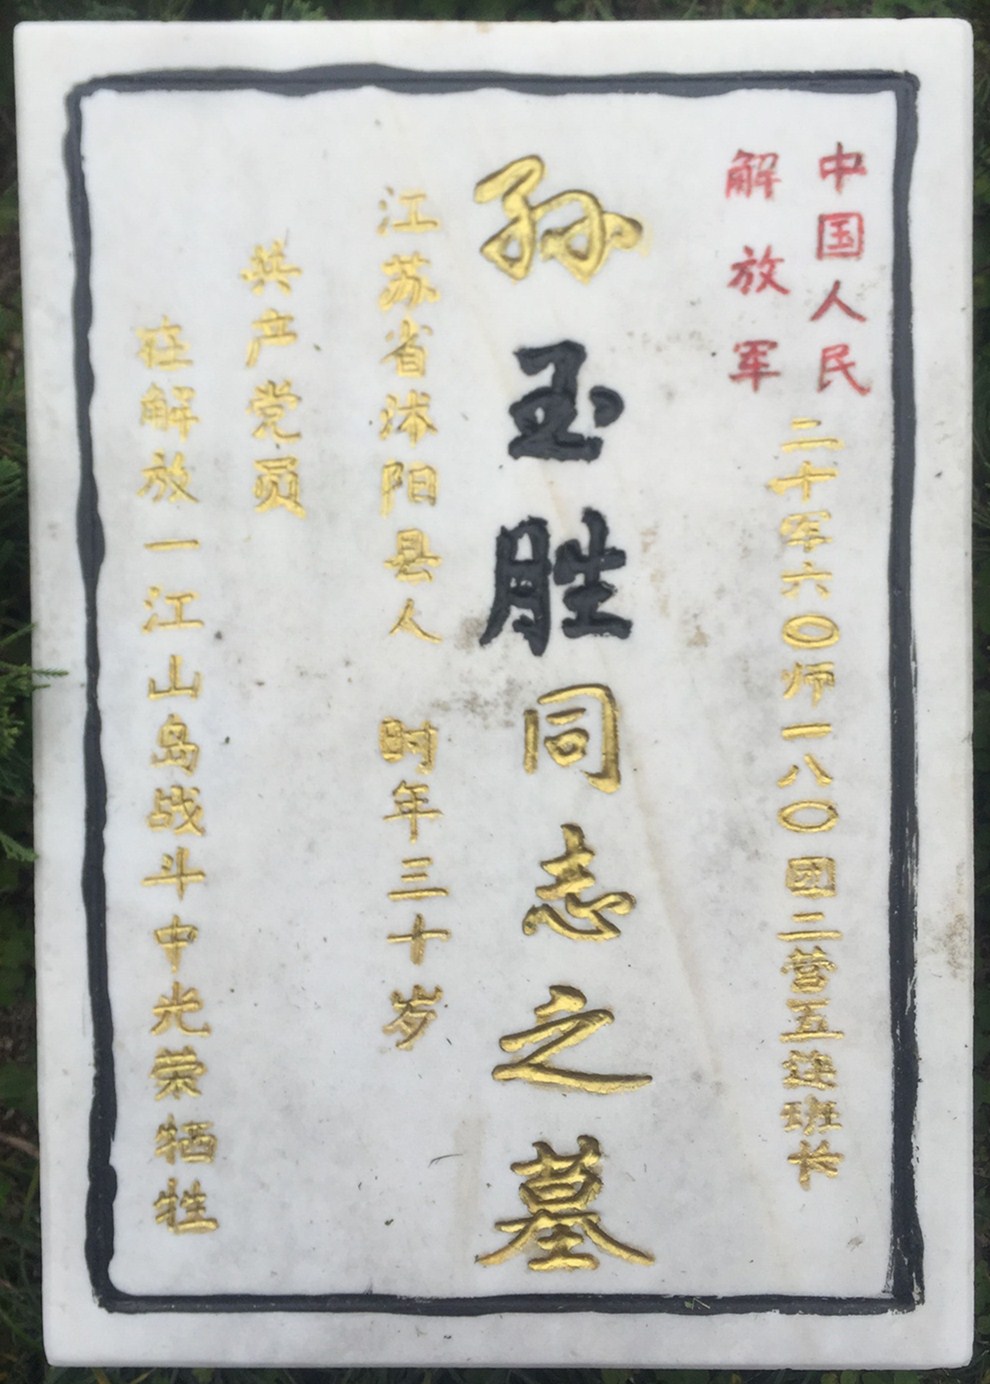 中国人民
解放军
二十军六〇师一八〇团二营五连班长
孙玉胜同志之墓
江苏省沭阳县人 时年三十岁
共产党员
在解放一江山岛战斗中光荣牺牲